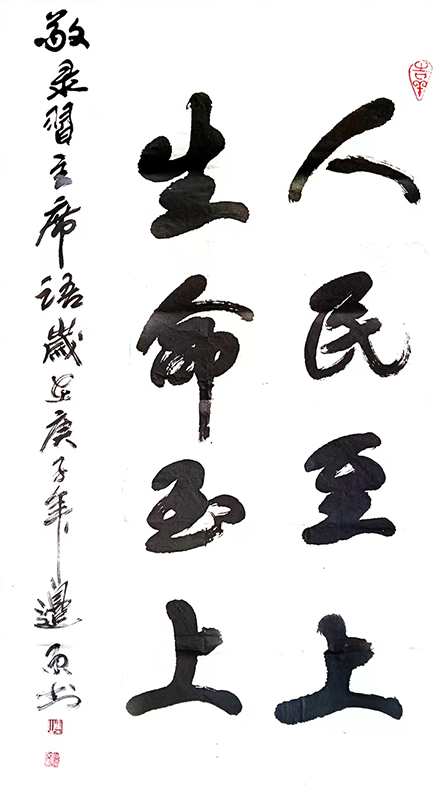 人民至上
生命至上
敬录習主席语歲在庚子年邊